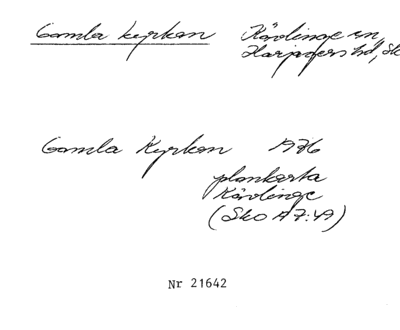 Gamla kyrkan Kävlinge sn,
Harjagers hd, Sk
Gamla Kyrkan 1976
plankarta
Kävlinge
(Sko 17:49)
Nr 21642